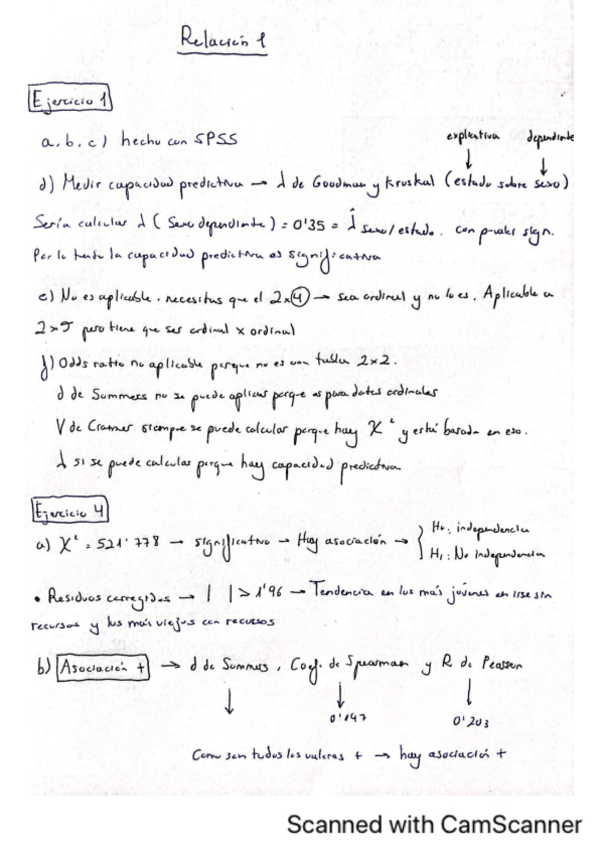 Relación 1
Ejercicio 1
a, b, c) hecho con SPSS
explicativa dependiente
d) Medir capacidad predictiva → λ de Goodman y Kruskal (estado sobre sexo)
Sería calcular λ (Sexo dependiente) = 0'35 = λ̂ sexo/estado. con p-valor sign.
Por lo tanto la capacidad predictiva es significativa
e) No es aplicable. necesitas que el 2x4 → sea ordinal y no lo es. Aplicable a
2x5 pero tiene que ser ordinal x ordinal
f) Odds ratio no aplicable porque no es una tabla 2x2.
d de Sommers no se puede aplicar porque es para datos ordinales
V de Cramer siempre se puede calcular porque hay X² y está basada en eso.
λ si se puede calcular porque hay capacidad predictiva
Ejercicio 4
a) X² = 521'778 → significativo → Hay asociación → { H₀: independencia
H₁: No independencia
• Residuos corregidos → | | > 1'96 → Tendencia en los más jóvenes en irse sin
recursos y los más viejos con recursos
b) Asociación + → d de Sommers, Coef. de Spearman y R de Pearson
0'197 0'203
Como son todos los valores + → hay asociación +
Scanned with CamScanner